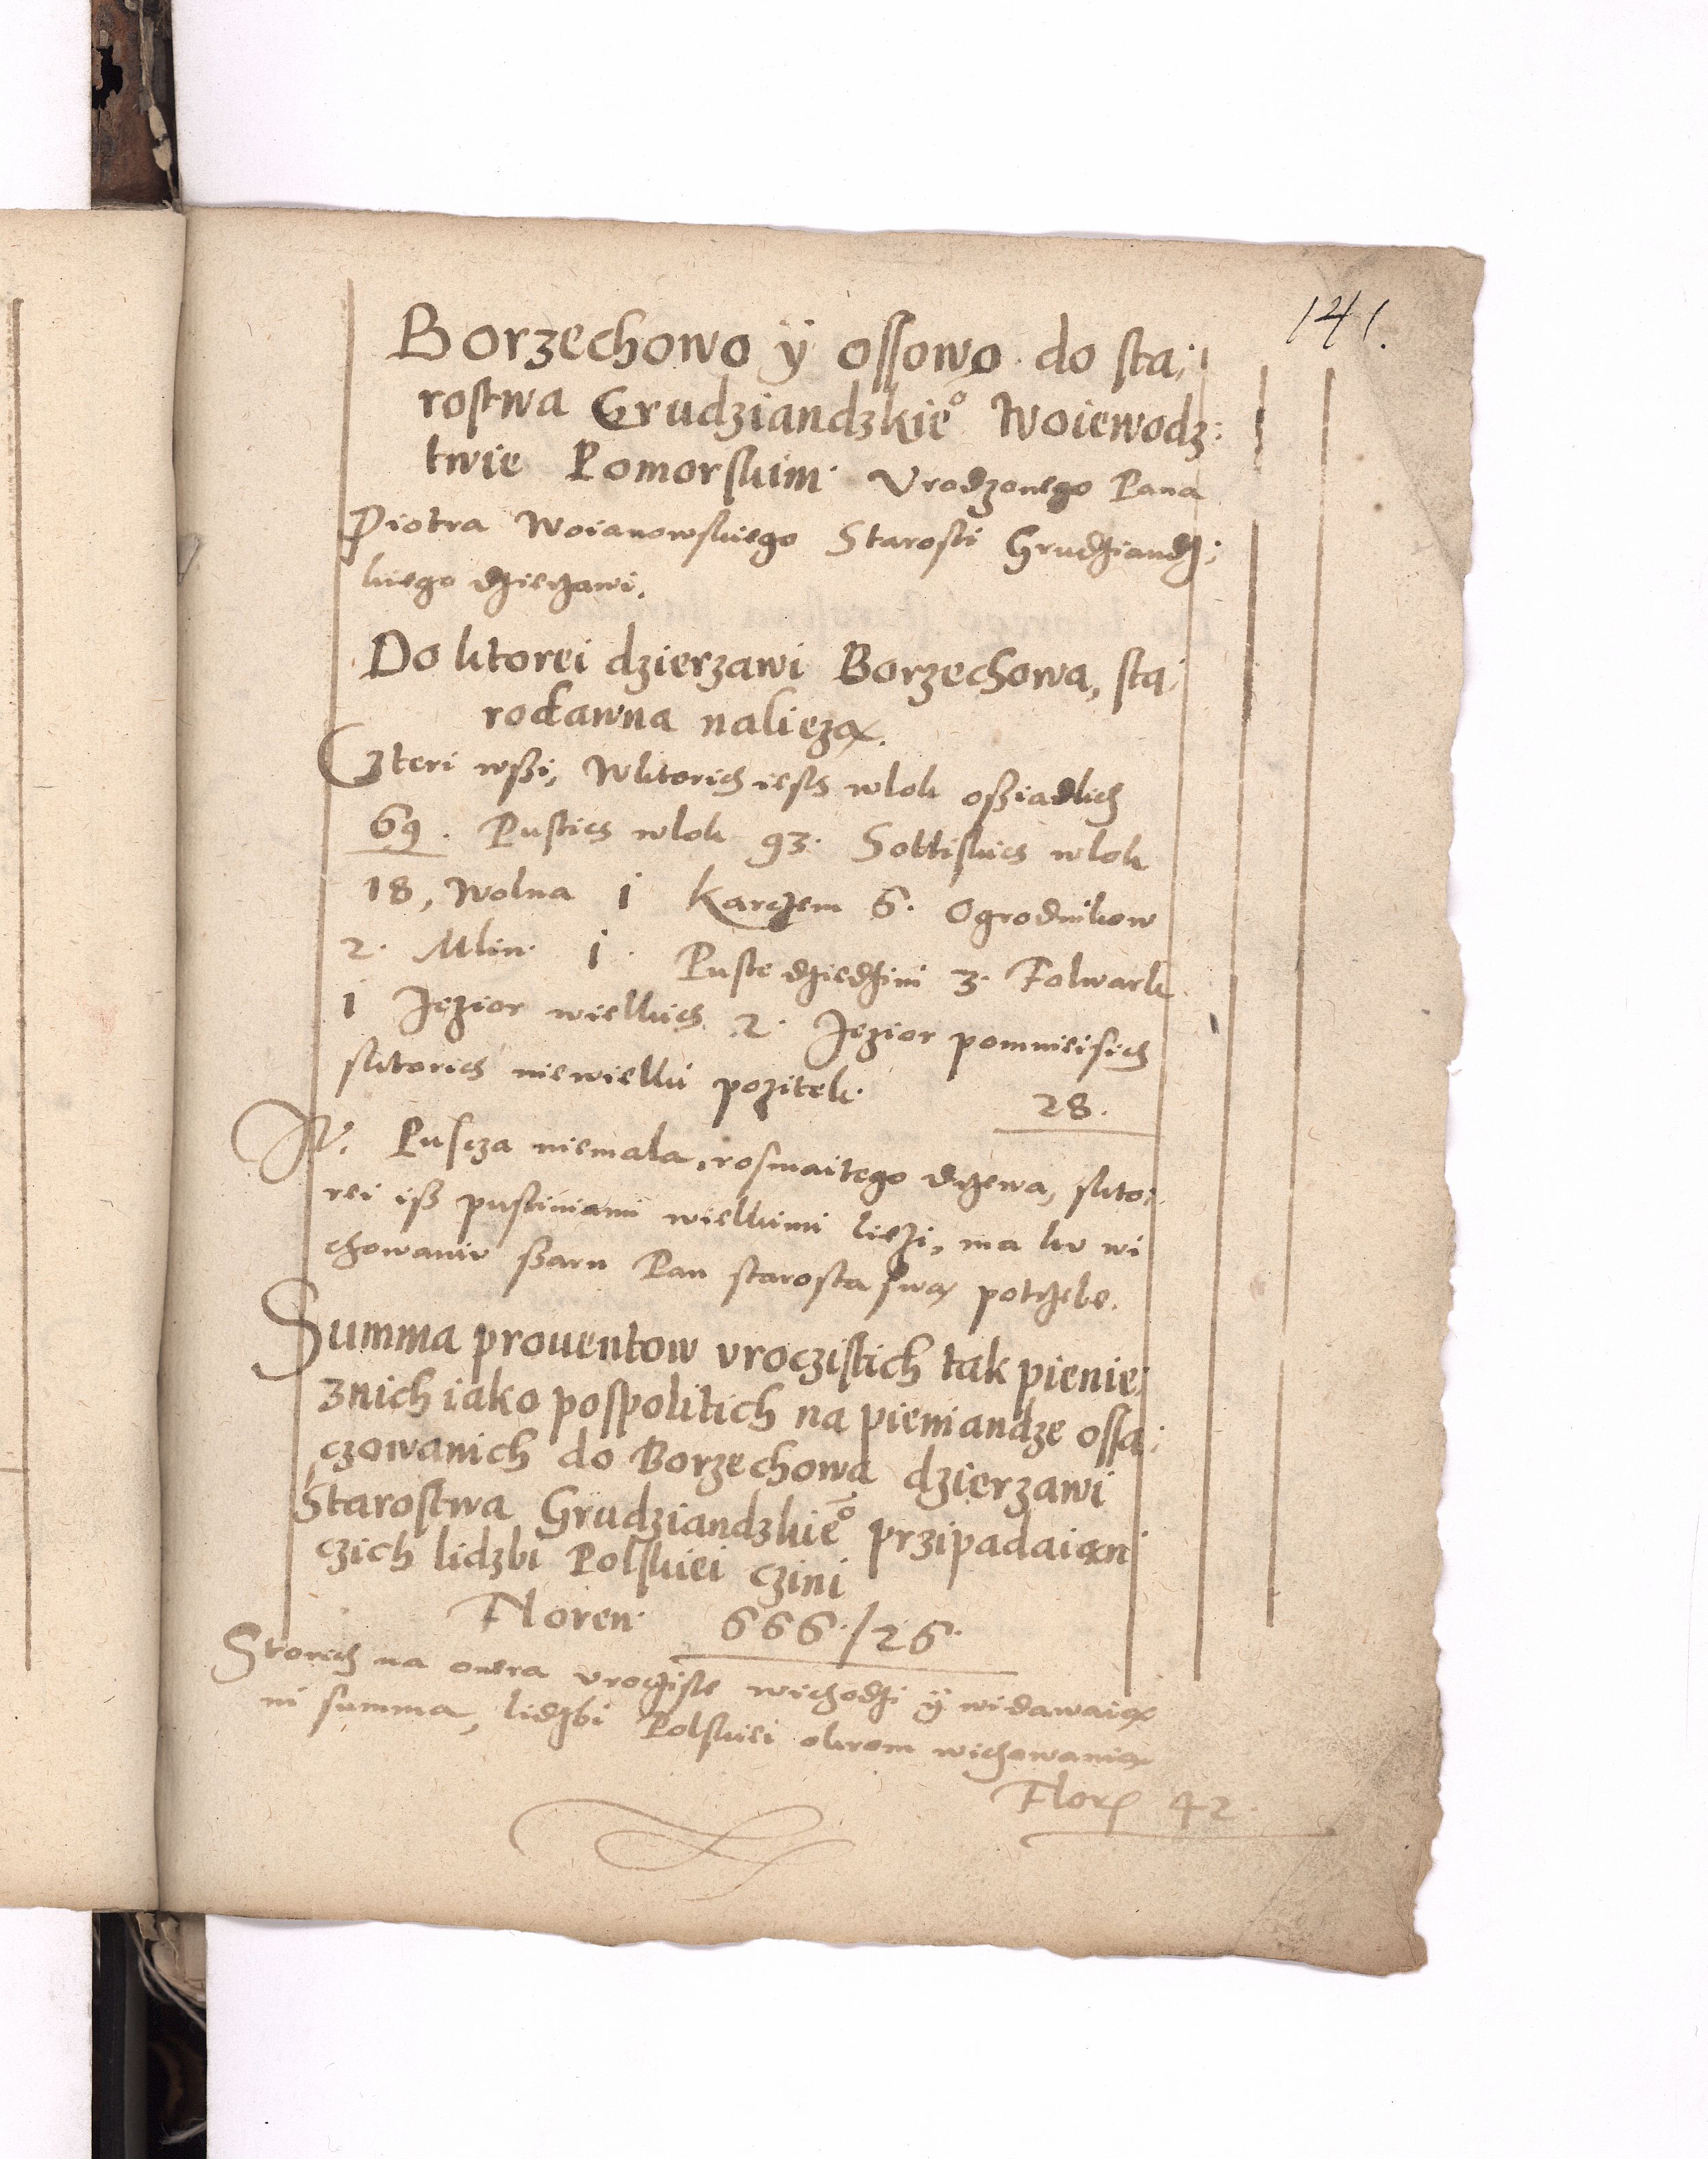 141.
Borzechowo ÿ ossowo do sta:
rostwa Grudziandzkie⁰ Woiewodz:
twie Pomorskim. Vrodzonego Pana
Piotra Woianowskiego Starosti Grudziandz:
kiego dzierzawi.
Do ktorei dzierzawi Borzechowa, sta:
rodawna nalieza̧.
Czteri wßi, Wktorich iest wlok oßiadlich
69. Pustich wlok 93. Soltiskich wlok
18, Wolna 1 Karczem 6. Ogrodnikow
2. Mlin. 1. Puste dziedzini 3. Folwark
1 Jezior wielkich 2. Jezior pomnieisich
sktorich niewielki pozitek. 28.
It. Puscza niemala, rosmaitego drzewa, skto:
rei iß pustiniami wielkimi liezi, ma ku wi
chowaniu ßarn Pan starosta swa̧ potrzebe.
Summa prouentow vroczistich tak pienie:
znich iako pospolitich na pieniandze ossa:
czowanich do Borzechowa dzierzawi
Starostwa Grudziandzkie⁰ przipadaia̧n
czich lidzbi Polskiei czini
Floren. 666./26.
Storich na onera vrocziste wichodzi ÿ widawaia̧
ni summa, lidzbi Polskiei okrom wichowania̧
Flor. 42